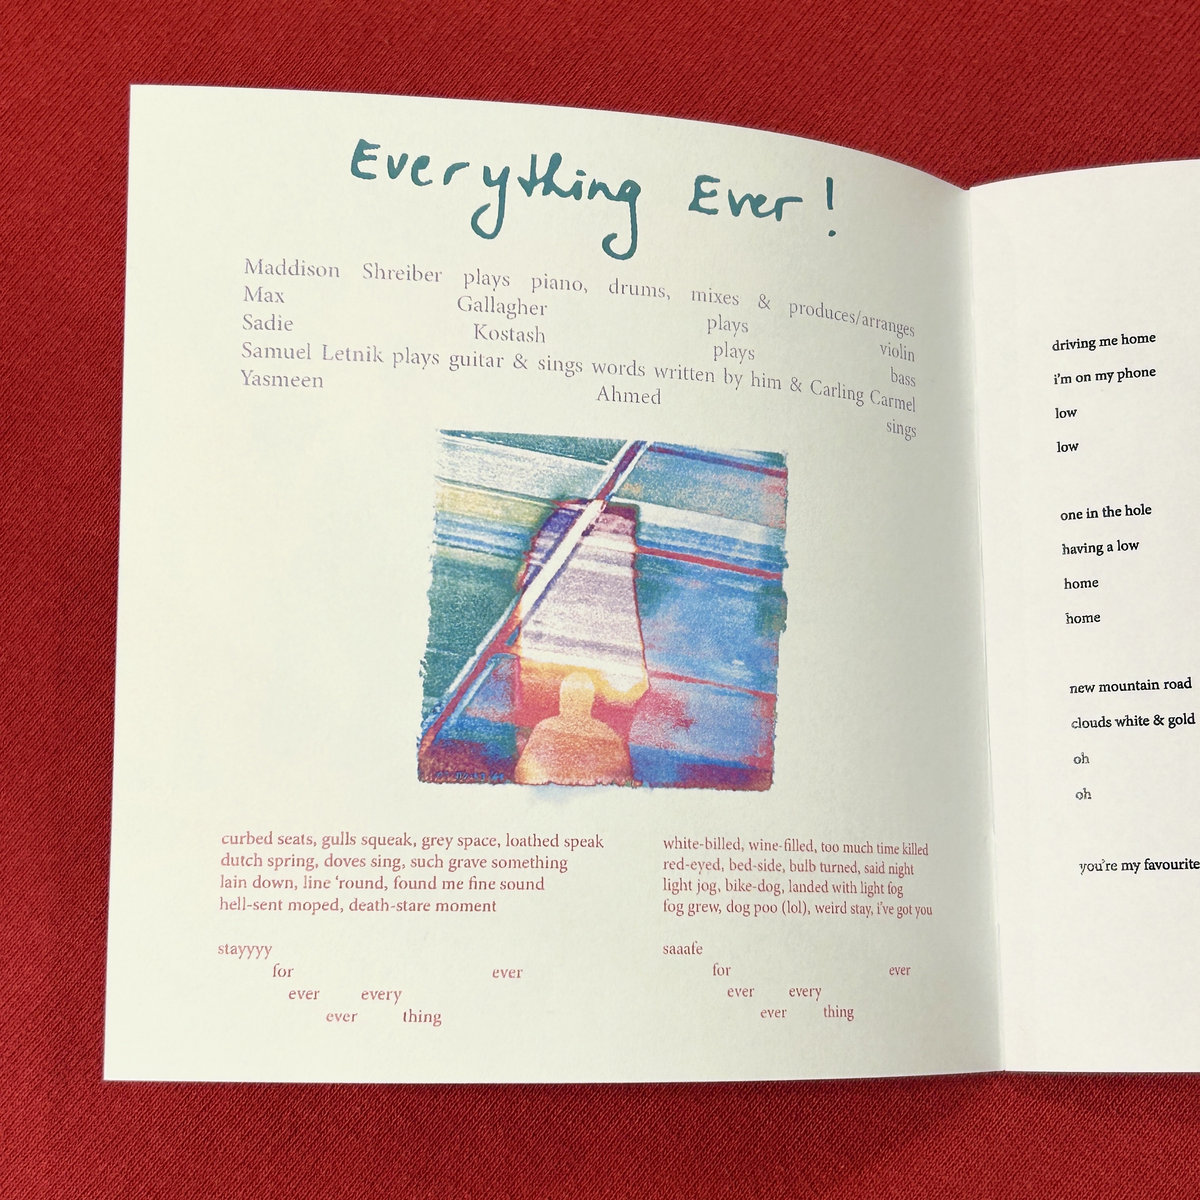 Everything Ever!
Maddison Shreiber plays piano, drums, mixes & produces/arranges
Max Gallagher plays violin
Sadie Kostash plays bass
Samuel Letnik plays guitar & sings words written by him & Carling Carmel
Yasmeen Ahmed sings
curbed seats, gulls squeak, grey space, loathed speak
dutch spring, doves sing, such grave something
lain down, line ‘round, found me fine sound
hell-sent moped, death-stare moment
stayyyy
for ever
ever every
ever thing
white-billed, wine-filled, too much time killed
red-eyed, bed-side, bulb turned, said night
light jog, bike-dog, landed with light fog
fog grew, dog poo (lol), weird stay, i’ve got you
saaafe
for ever
ever every
ever thing
driving me home
i’m on my phone
low
low
one in the hole
having a low
home
home
new mountain road
clouds white & gold
oh
oh
you’re my favourite